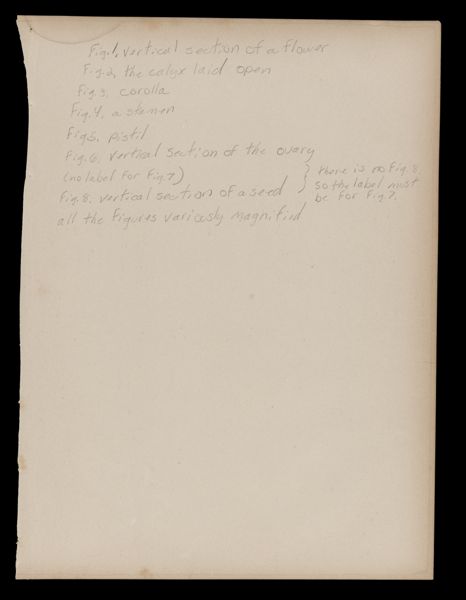 Fig.1, vertical section of a flower
Fig.2, the calyx laid open
Fig.3, corolla
Fig.4, a stamen
Fig5, pistil
Fig.6, vertical section of the ovary
(no label for Fig.7)
Fig.8, vertical section of a seed
all the figures variously magnified
there is no Fig.8,
so the label must
be for Fig.7.